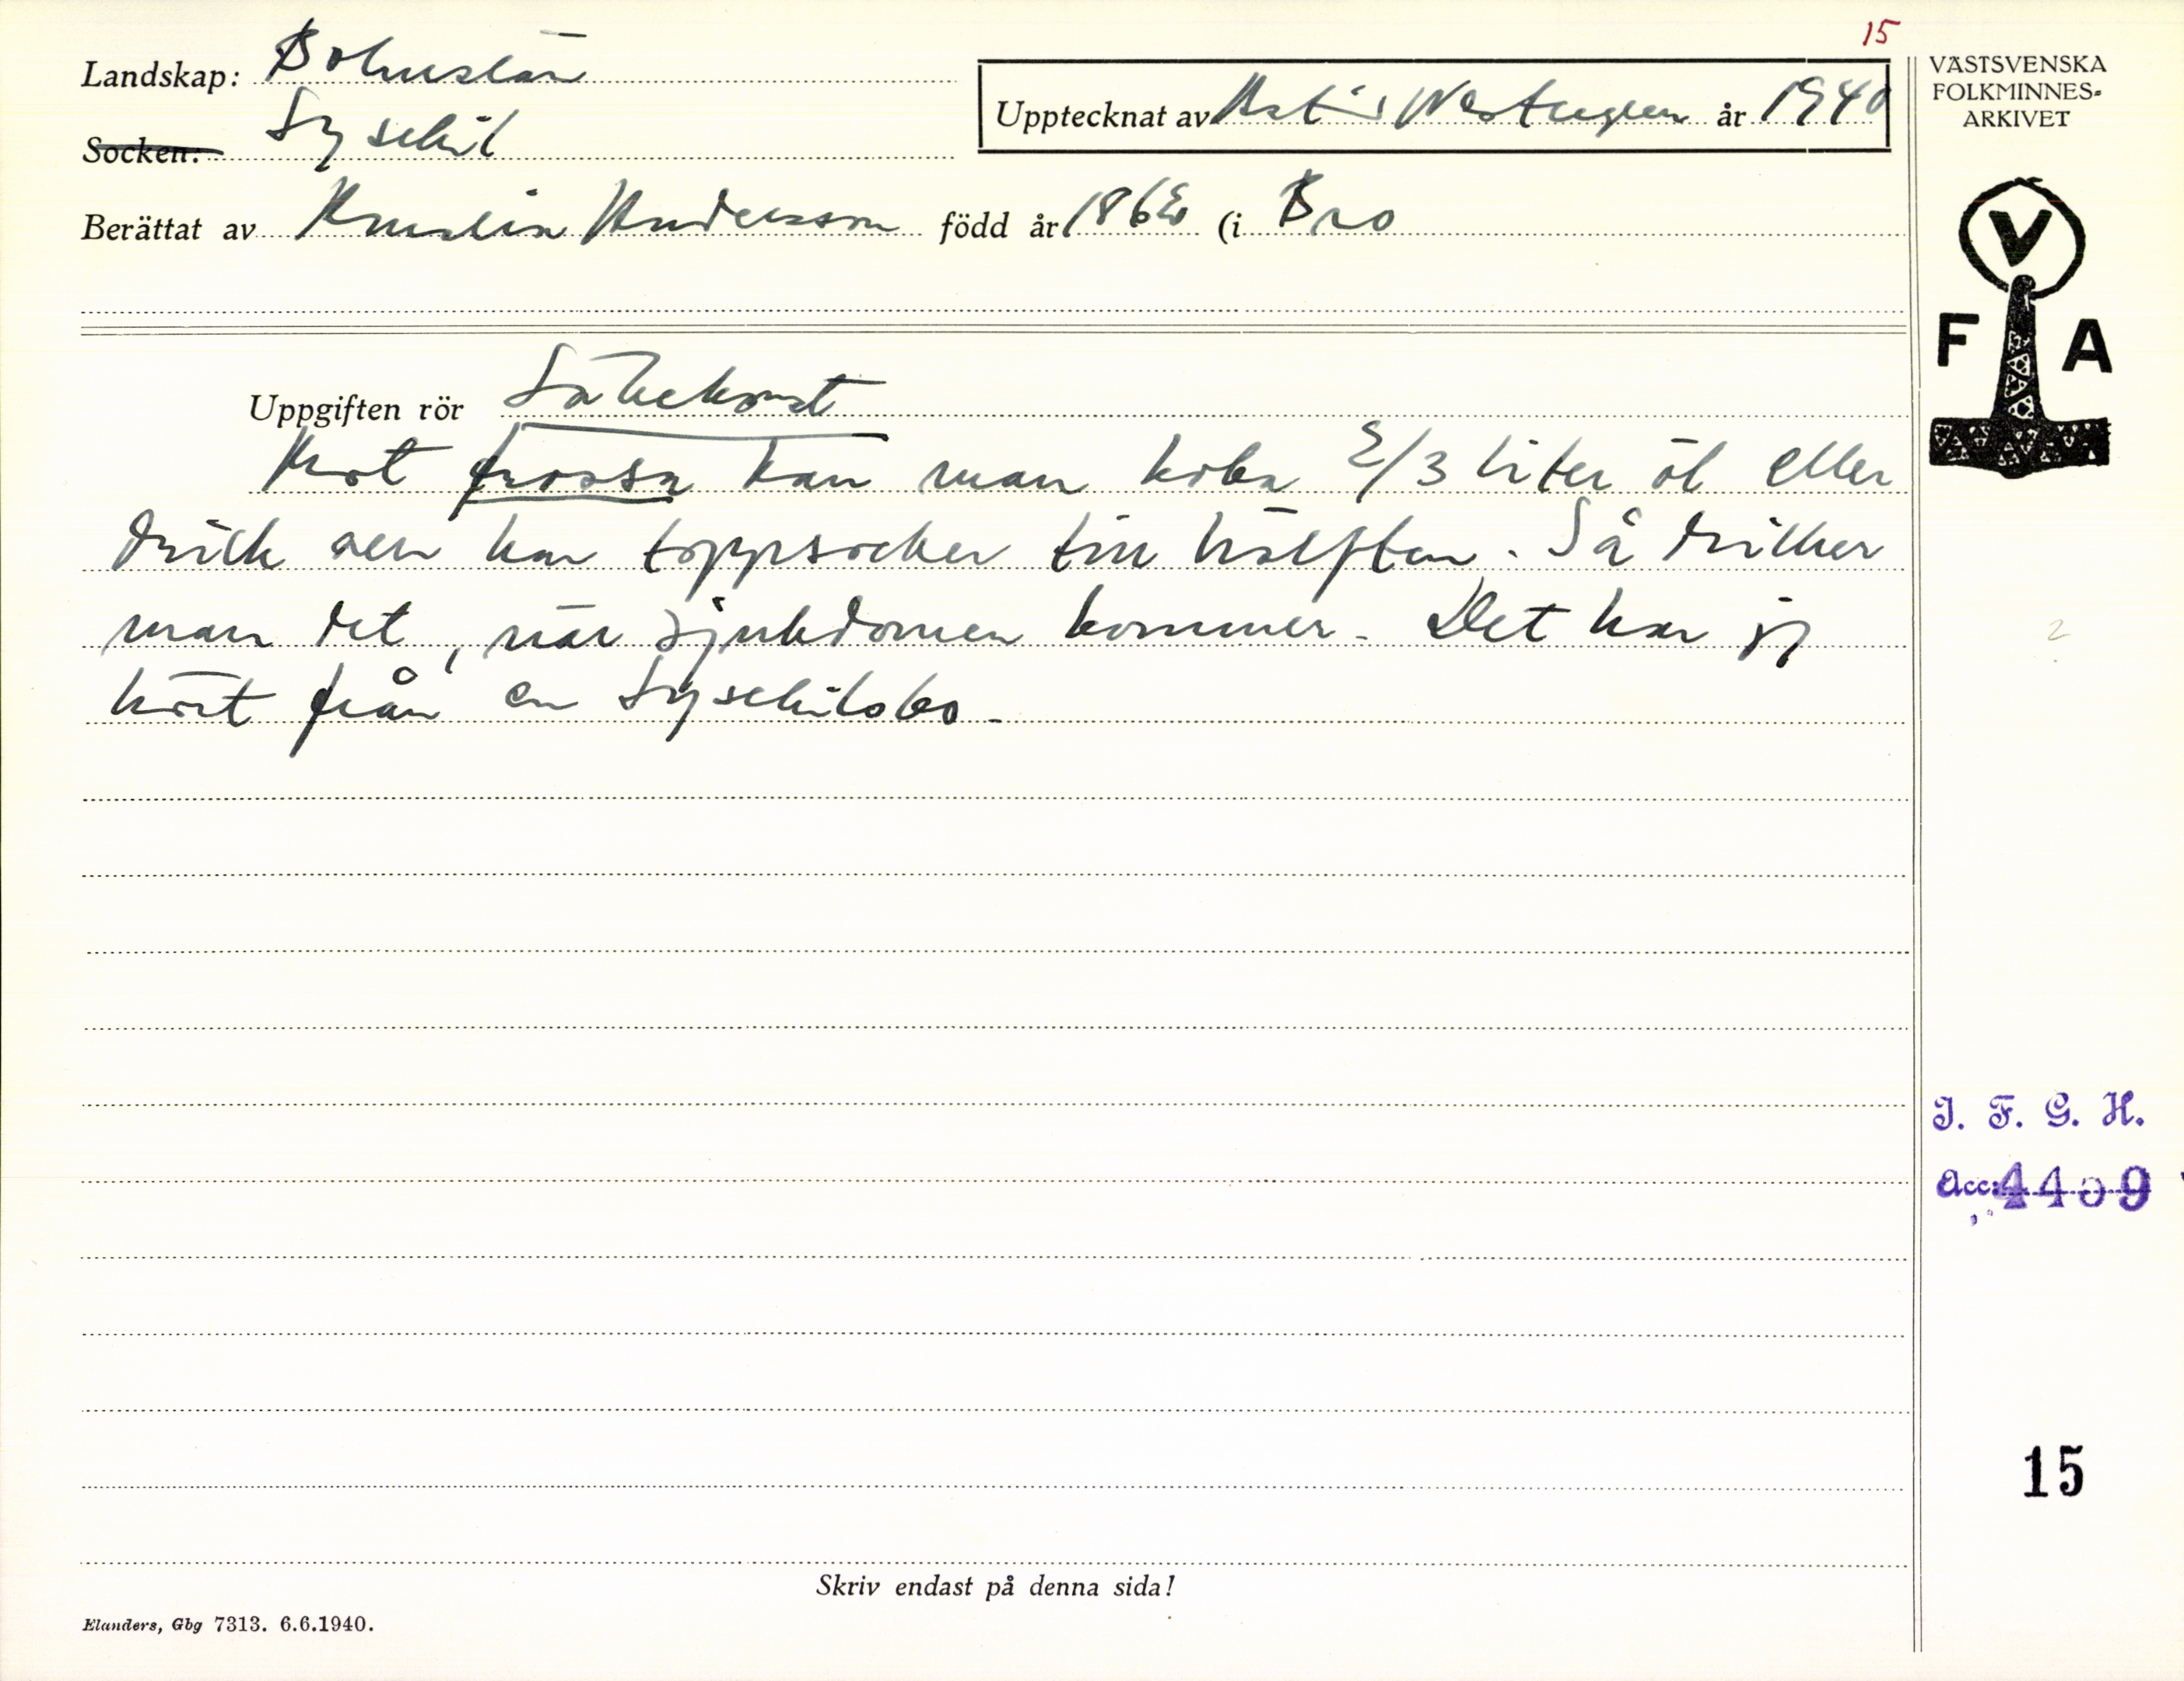 15
Landskap: Bohuslän
Socken: Lysekil
Upptecknat av Astrid år 1940
Berättat av Andersson född år 1862 (i Bro
VÄSTSVENSKA
FOLKMINNES-
ARKIVET
V
F A
Uppgiften rör Läkekonst
Mot frossa kan man koka 2/3 liter öl eller
dricka sen har toppsocker till hälften. Så dricker
man det, när sjukdomen kommer. Det har jag
hört från en Lysekilsbo.
2
I. F. G. H.
Acc: 4409
15
Skriv endast på denna sida!
Elanders, Gbg 7313. 6.6.1940.